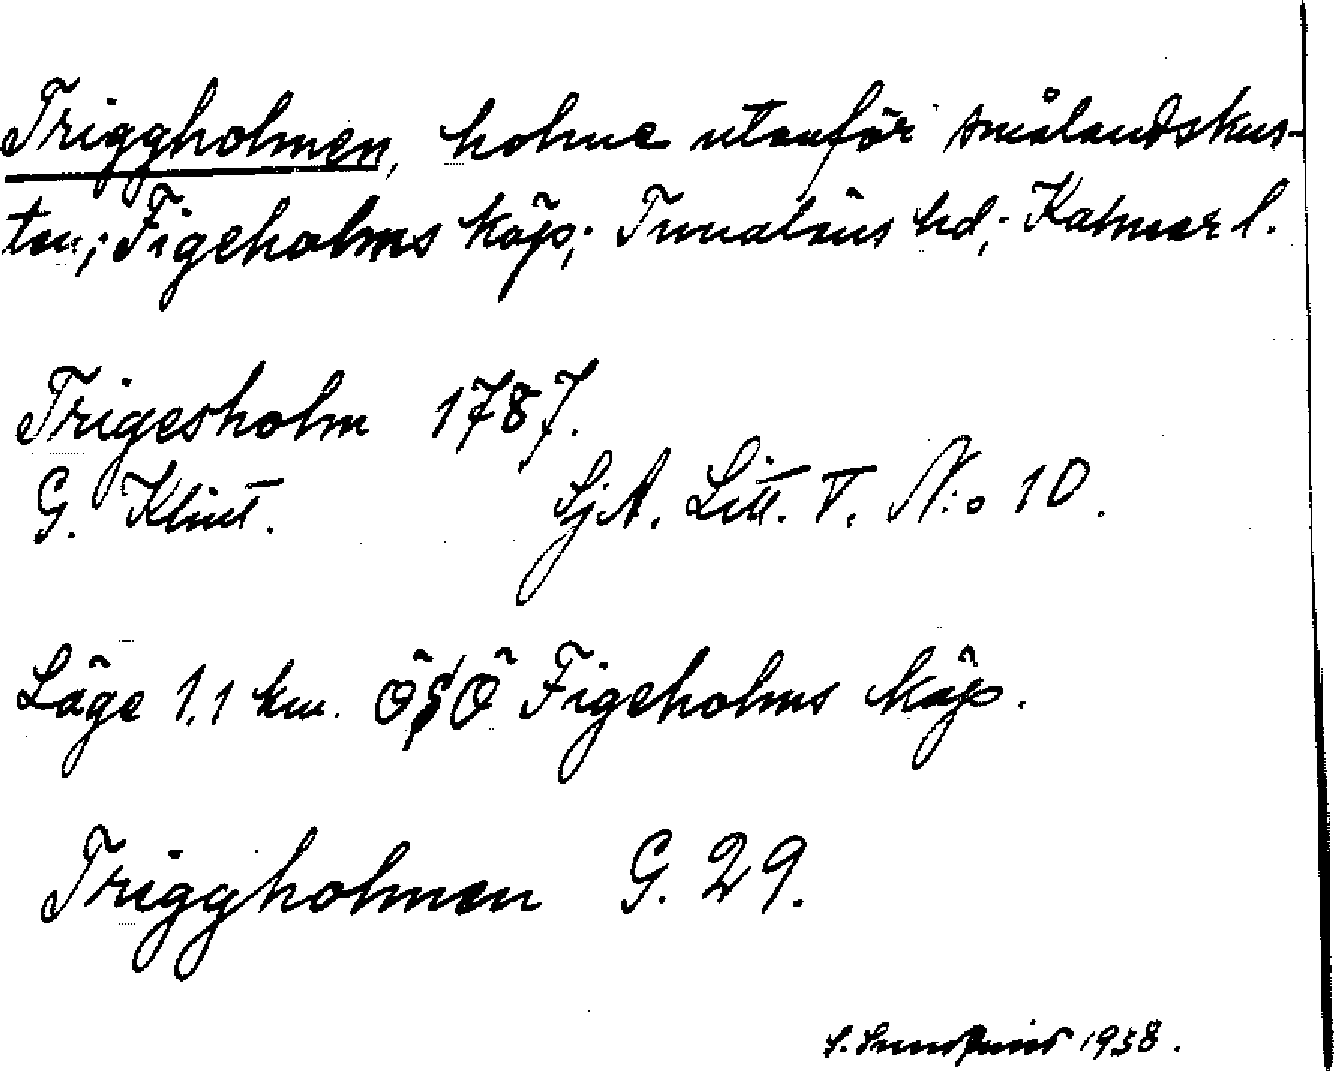 Triggholmen, holme utanför smålandskus-
ten; Figeholms köp; Tunaläns hd; Kalmar l.
Trigesholm 1787.
G. Klint. SjA. Litt. T. N:o 10.
Läge 1.1 km. ÖSÖ Figeholms köp.
Triggholmen G. 29.
1938.